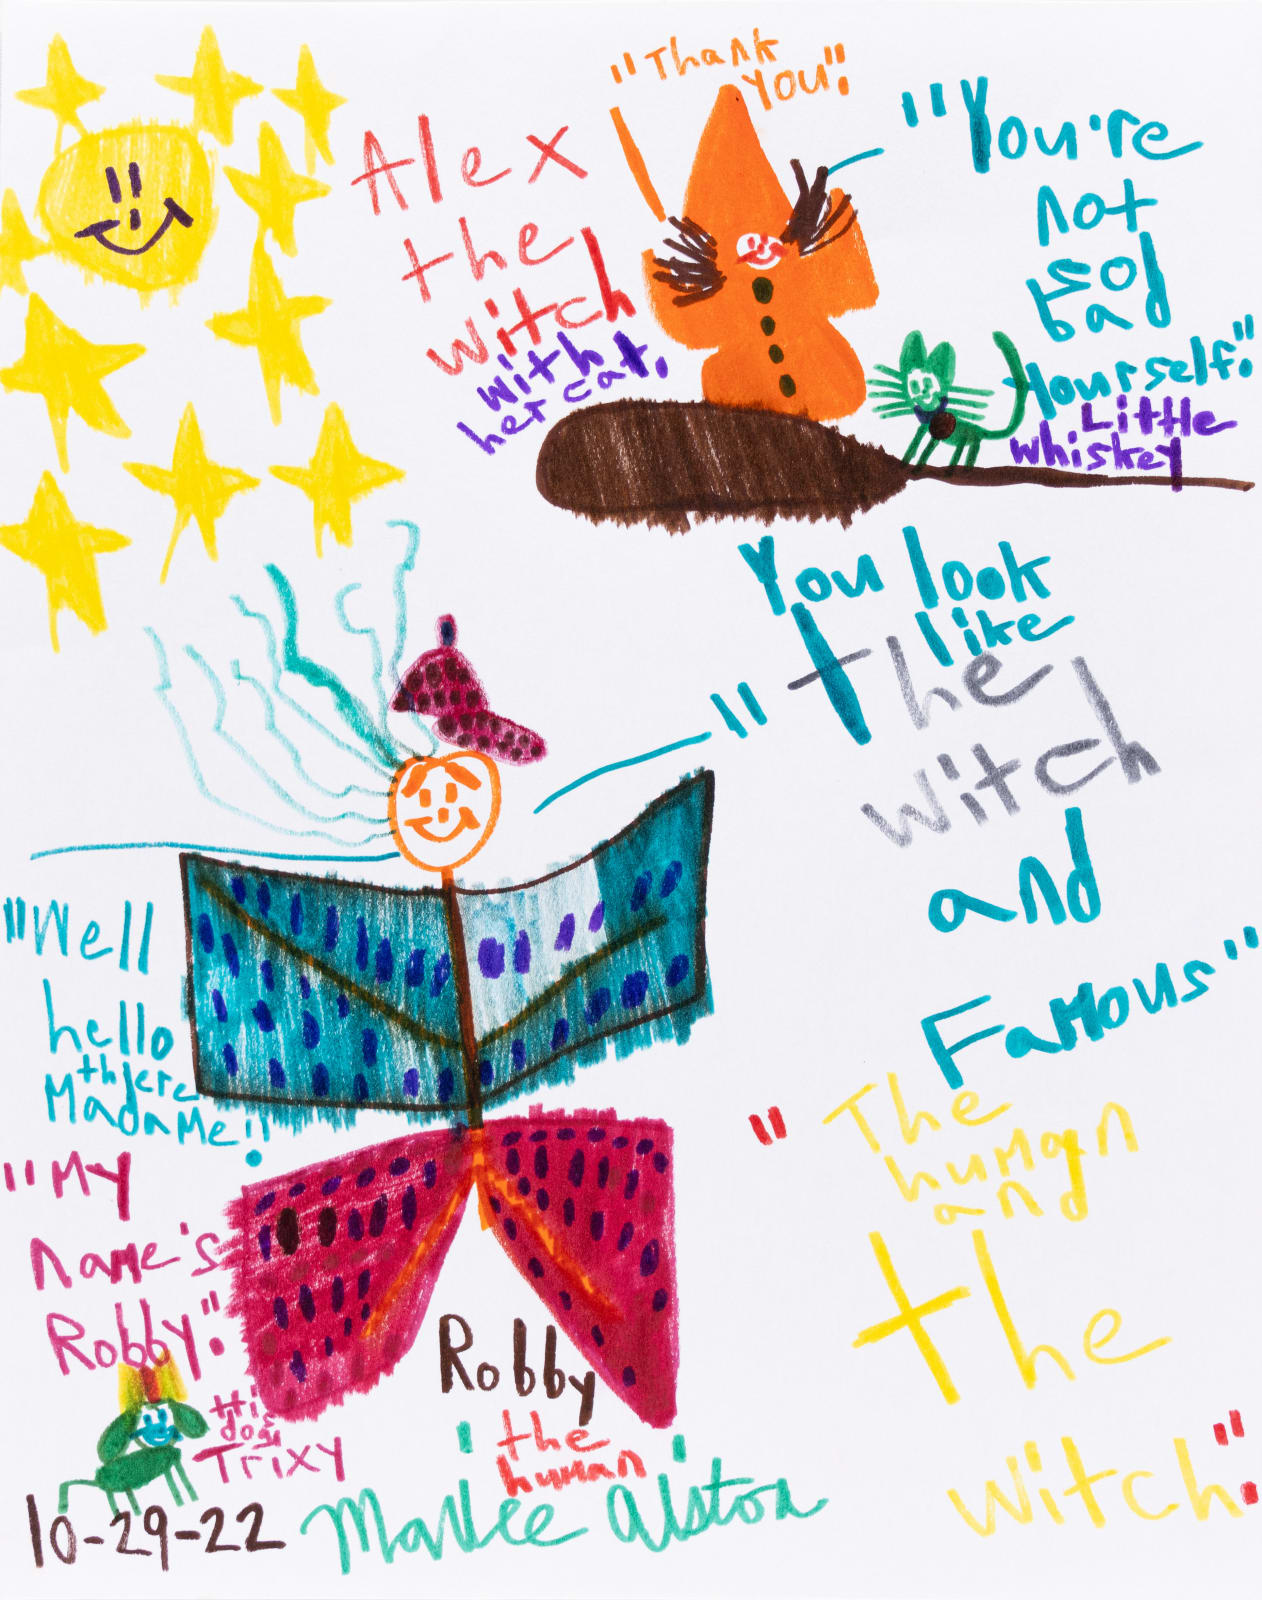 "Thank
You".
Alex
the
witch
with
her cat.
"You're
not
so
bad
Yourself".
Little
whiskey
You look
like
"the
witch
and
Famous"
"Well
hello
there
MadaMe!!
"My
NaMe's
Robby".
His
dog
Trixy
Robby
'the
human'
"The
huMan
and
the
witch".
10-29-22 Marlee Alston